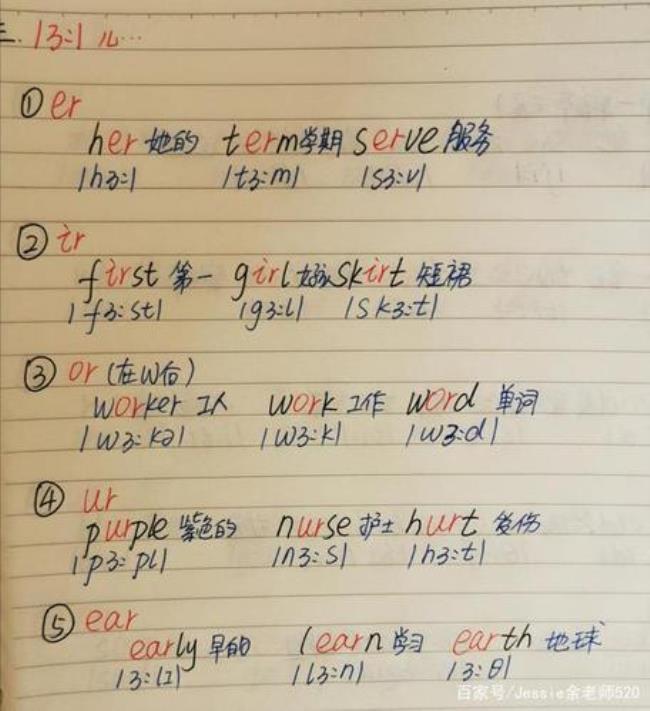 三. /ɜː/ 儿…
① er
her 她的 term 学期 serve 服务
/hɜː/ /tɜːm/ /sɜːv/
② ir
first 第一 girl 女孩 skirt 短裙
/fɜːst/ /gɜːl/ /skɜːt/
③ or (在w后)
worker 工人 work 工作 word 单词
/wɜːkə/ /wɜːk/ /wɜːd/
④ ur
purple 紫色的 nurse 护士 hurt 受伤
/pɜːpl/ /nɜːs/ /hɜːt/
⑤ ear
early 早的 learn 学习 earth 地球
/ɜːlɪ/ /lɜːn/ /ɜːθ/
百家号/Jessie余老师520